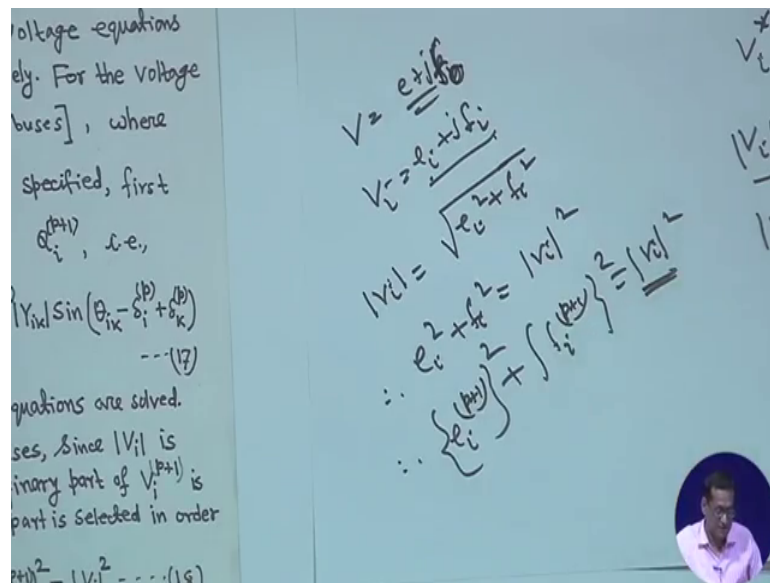 oltage equations
ely. For the voltage
buses], where
specified, first
Q_i^{(p+1)}, i.e.,
|Y_{ik}| Sin(θ_{ik} - δ_i^{(p)} + δ_k^{(p)})
----(17)
quations are solved.
ses, Since |V_i| is
inary part of V_i^{(p+1)} is
part is selected in order
p+1)^2 = |V_i|^2 ----(18)
V = e+jf
V_i = e_i + jf_i
|V_i| = √(e_i^2 + f_i^2)
∴ e_i^2 + f_i^2 = |V_i|^2
∴ {e_i^{(p+1)}}^2 + {f_i^{(p+1)}}^2 = |V_i|^2
V_i^*
|V_i